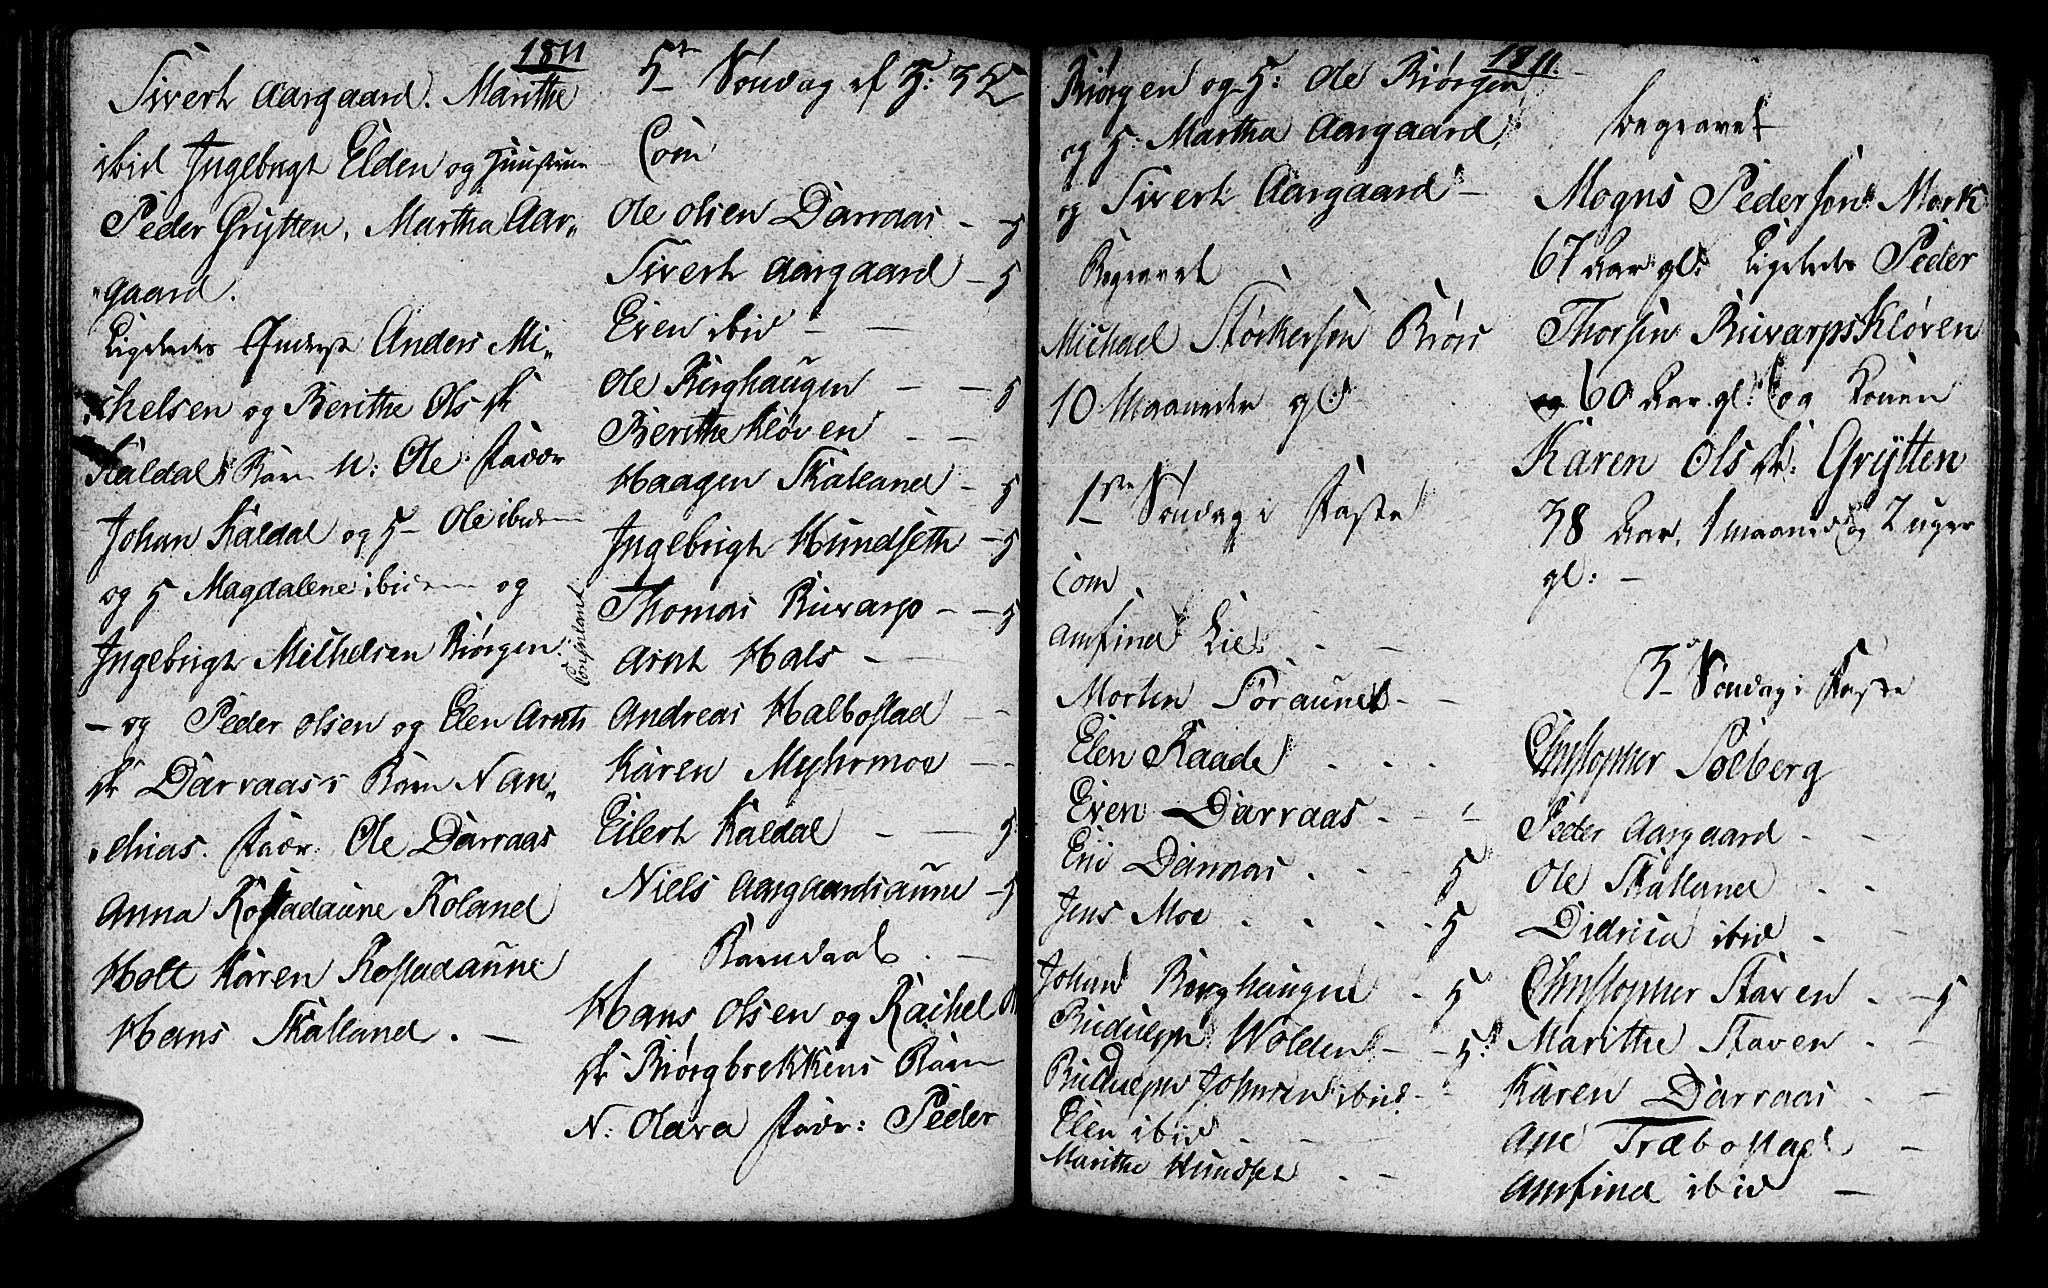 1811
Sivert Aargaard. Marithe
ibid Ingebrigt Elden og Huustrue
Peder Grÿtten, Martha Aar„
„gaard.
Ligeledes Anders Mi„
„chelsen og Berithe Ols dr
Kaldals Barn N: Ole. Faddr
Johan Kaldal og H– Ole ibidem
og H Magdalene ibidem og
Ingebrigt Michelsen Biørgen.
– og Peder Olsen og Elen Arnts
dr Darraas's Barn N An„
„dreas. Faddr: Ole Darraas
Anna Rostadaune Roland
Holt Karen Rostadaune
Hans Skalland. –
5te Søndag ef H: 3 K
Com
Ole Olsen Darraas – H
Sivert Aargaard – H
Even ibid – –
Ole Berghaugen – – H
Berithe Kløven – –
Haagen Skalland – H
Ingebrigt Hundseth – H
Thomas Buvarp – – H
Arnt Hals – –
Andreas Halbostad – –
Karen Myhrmoe – –
Eilert Kaldal – – H
Niels Aargaardsaune – H
Barndaab. –
Hans Olsen og Rachel
dr Biørgbrekkens Barn
N: Olava Faddr: Peder
1811.
Biørgen og H: Ole Biørgen
og H: Martha Aargaard,
og Sivert Aargaard –
Begravet
Michael Størkersen Biørs
10 Maaneder gl:
1ste Søndag i Faste
Com.
Amfind Lie. – –
Morten Søraunet – –
Elen Raade . . .
Even Darraas – – –
Eric Darraas . – H
Jens Moe . . . . H
Johan Berghaugen . H
Rudulph Wolden – – H
Rudulph Johnsen ibid. –
Elen ibid – –
Marithe Hundset . –
begravet
Mogns Pedersen Mork
67 Aar gl: Ligeledes Peder
Thorsen Buvarpskløven
60 Aar gl: og Konen
Karen Ols dr: Grÿtten
38 Aar, 1 maaned og 2 uger
gl: –
3 Søndag i Faste
Christopher Solberg
Peder Aargaard – –
Ole Skalland . .
Didrica ibid . –
Christopher Staven . – H
Marithe Staven . –
Karen Darraas . –
Ane Træbostad –
Amfind ibid –